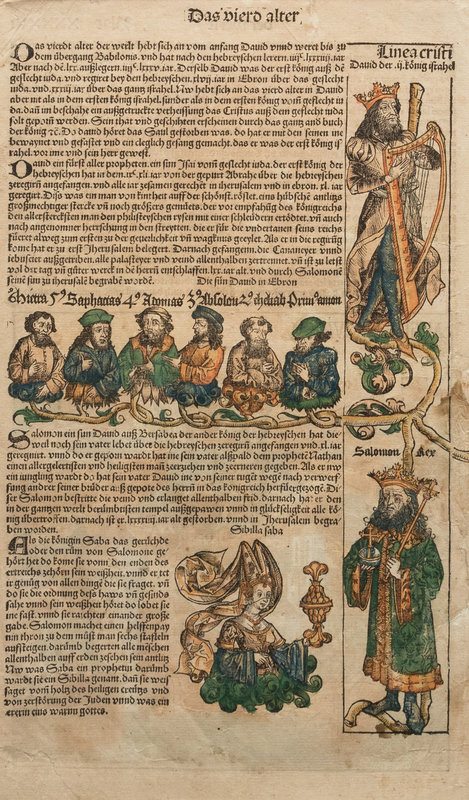 Das vierd alter
Das vierdt alter der werlt hebt sich an vom anfang Dauid vnnd weret bis zu
dem übergang Babilonis. vnd hat nach den hebreyschen lerern
Aber nach
geslecht iuda. vnd regiret bey den hebreyschen
iuda. vnd
aber nit als in dem ersten künig israhel. sunder als in dem ersten künig vom geslecht iu
da. dann im beschahe ein außgetruckte verheissung das Cristus auß dem geslecht iuda
solt geporn werden. Sein thate vnd geschihten erscheinen durch das gantz buch
der künig Do dauid höret das Saul gestorben was. do hat er mit den seinen
beweynet vnd gefastet vnd ein cleglich gesang gemacht. das er was der erst künig is
rahel. vor ime vnd sein heer gewest.
Dauid ein fürst aller propheten. ein sun Isai vom geslecht iuda. der erst künig der
hebreyschen hat in dem iar von der gepurt Abrahe über die hebreyschen
zeregirn angefangen. vnd alle iar zesamen gerechet in iherusalem vnd in ebron. xl. iar
geregirt. Diß was ein man von kintheit auff der schönst. röslet. eins hübschē antlitzs
großmechtiger sterck vnd noch größers gemüets. der vor empfahūg des künigreichs
den allersterckisten man den philisteyschen rysen mit einer schleudern ertödtet. vn̄ auch
nach angenomner herrschung in den streytten. die er für die vndertanen seins reichs
füeret alweg zum ersten zu der geferlichkeit vn̄ wagknus geeylet. Als er in die regirūg
kome hat er zu erst Jherusalem belegert. Darnach gefangen. die Cananeyer vnnd
iebuseier außgetriben. alle palasteyer vnd veind allenthalben zertrennet. vn̄ ist zu letst
vol der tag vn̄ güter werck in dē herrn̄ entschlaffen. lxx. iar alt. vnd durch Salomonē
seinē sun zu iherusalē begrabē wordē. Die sün Dauid in Ebron
Saphacias 4⁹ Adonias 3⁹ Absolon 2⁹ cheliab Prim⁹ amon
Salomon ein sun Dauid auß Bersabea der ander künig der hebreyschen hat die
weil noch sein vater lebet über die hebreyschen zeregirn angefangen vnd. xl. iar
geregniret. vnnd do er geporn wardt hat ine sein vater alßpald dem prophetē Nathan
einen allergelertisten vnd heiligsten man zeerziehen vnd zeerneren gegeben. Als er nw
ein iungling wardt do hat sein vater Dauid ine von seiner tugēt wegē nach verwerf
fung andrer seiner brüder auß gepote des herrn̄ in das künigreich herfürgezogē. Di
ser Salomon bestritte die veind vnd erlanget allenthalben frid. darnach hat er den
in der gantzen werlt berümbtisten tempel außgepawen vnnd in glückseligkeit alle kü
nig übertroffen. darnach ist er. lxxxxiiij. iar alt gestorben. vnnd in Jherusalem begra
ben worden. Sibilla saba
Als die künigin Saba das gerüchde
oder den rům von Salomone ge
hört het do kome sie vonn den enden des
ertreichs zehörn sein weißheit. vnnd er tet
ir genüg von allen dingē die sie fraget. vn̄
do sie die ordnung deß haws vn̄ gesinds
sahe vnnd sein weißheit höret do lobet sie
ine fast. vnnd sie raichten einander große
gabe. Salomon machet einen helffenpay
nin thron zu dem můst man sechs staffeln
aufsteigen. darūmb begerten alle mēschen
allenthalben auff erden zesehen sein antlitz.
Nw was Saba ein prophetin darūmb
wardt sie ein Sibilla genant. dan̄ sie weis
saget vom holtz des heiligen creutzs vnd
von zerstörung der Juden vnnd was ein
ererin eins warn gottes.
Linea cristi
Dauid der .ij. künig israhel
Salomon Rex